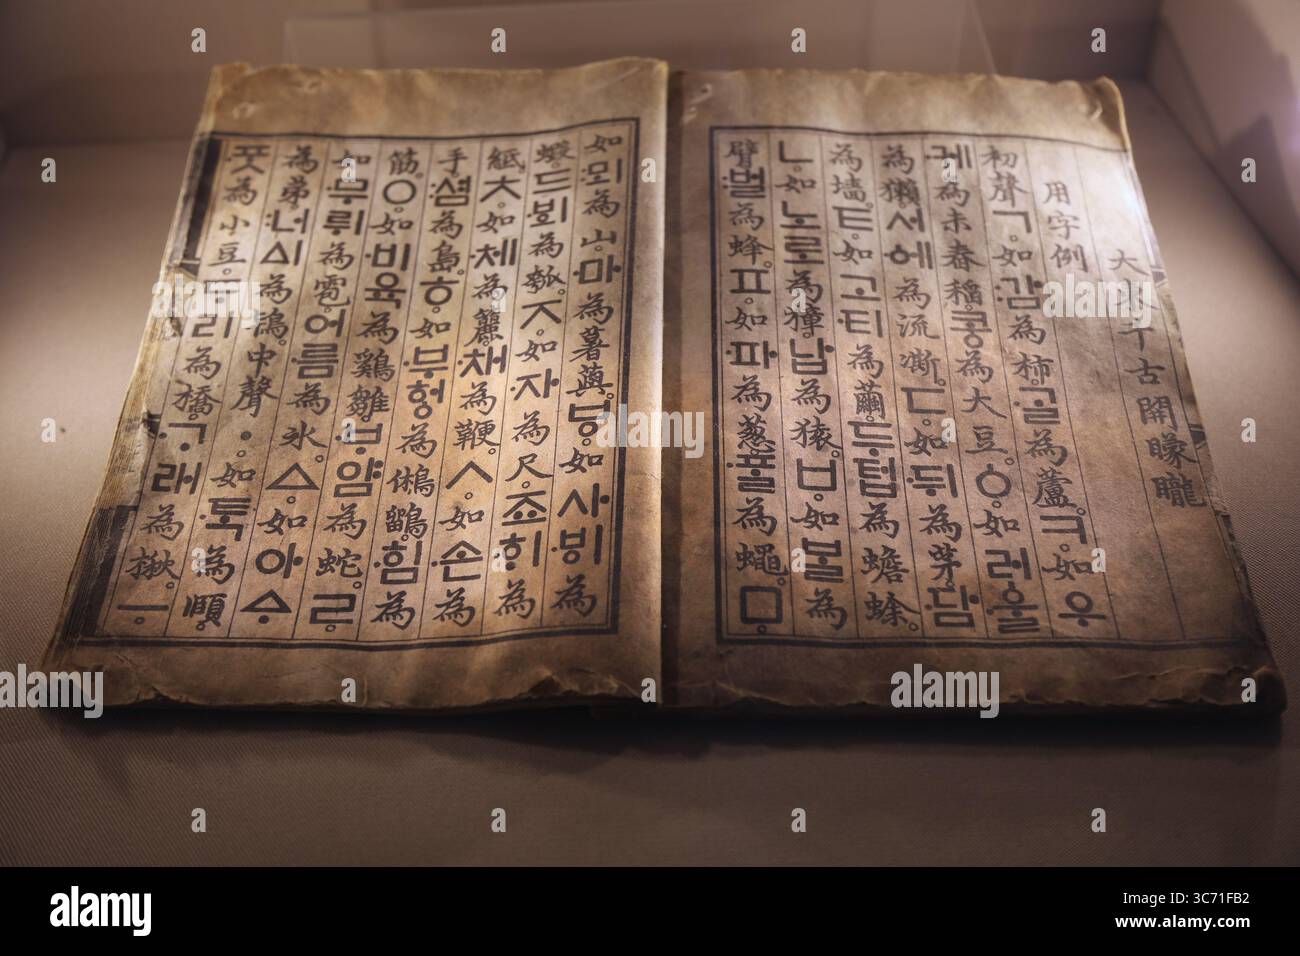 大東千古開矇矓
用字例
初聲ㄱ。如감為柿。ᄀᆞᆯ為蘆。ㅋ。如우
케為未舂稻。콩為大豆。ㆁ。如러울
為獺。서에為流凘。ㄷ。如뒤為茅。담
為墻。ㅌ。如고티為繭。두텁為蟾蜍。
ㄴ。如노로為獐。납為猿。ㅂ。如ᄇᆞᆯ為
臂。벌為蜂。ㅍ。如파為葱。ᄑᆞᆯ為蠅。ㅁ。
如뫼為山。마為薯藇。ㅸ。如사ᄫᅵ為
蝦。드ᄫᅴ為瓠。ㅈ。如자為尺。죠ᄒᆡ為
紙。ㅊ。如체為籭。채為鞭。ㅅ。如손為
手。셤為島。ㅎ。如부헝為鵂鶹。힘為
筋。ㅇ。如비육為鷄雛。ᄇᆞ얌為蛇。ㄹ。
如무뤼為雹。어름為氷。ㅿ。如아ᅀᆞ
為弟。너ᅀᅵ為鴇。中聲ㆍ。如ᄐᆞᆨ為頤。
ᄑᆞᆺ為小豆。ᄃᆞ리為橋。ᄀᆞ래為楸。ㅡ。
alamy
Image ID: 3C71FB2
www.alamy.com